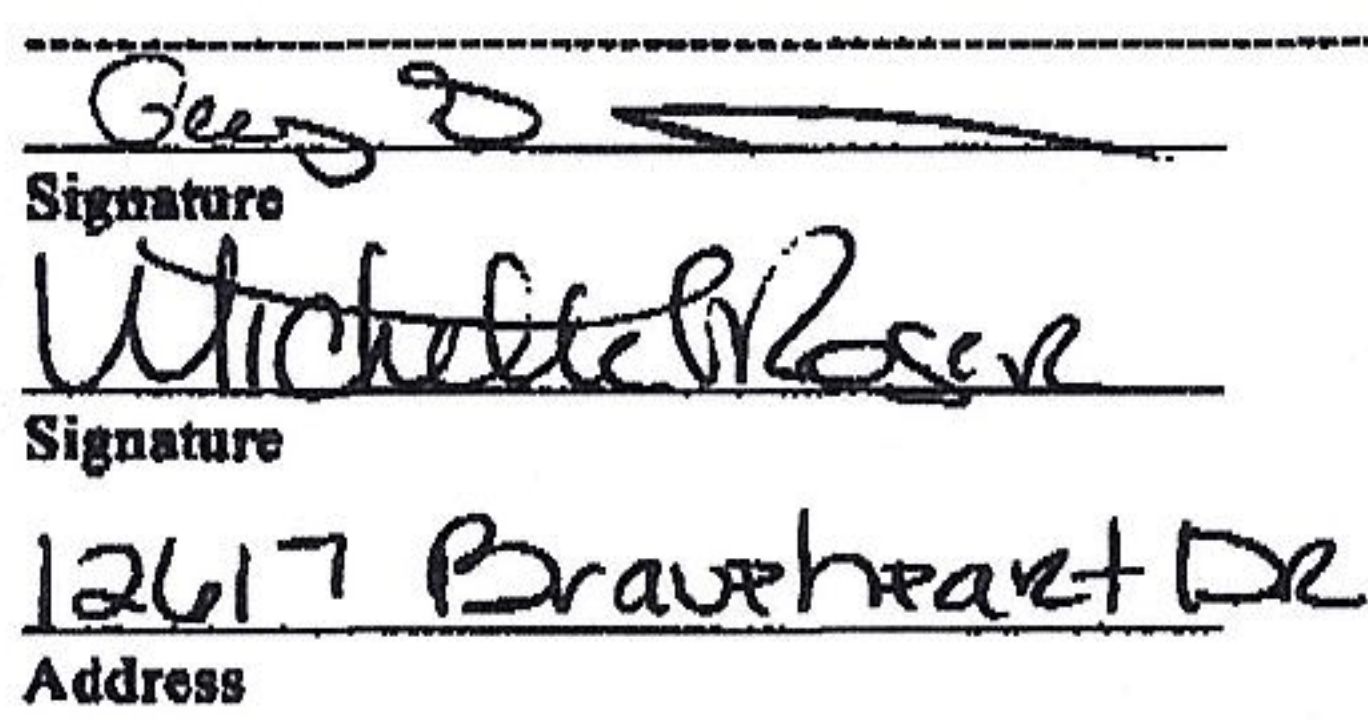 Signature
Michelle Roser
Signature
12617 Braveheart DR
Address